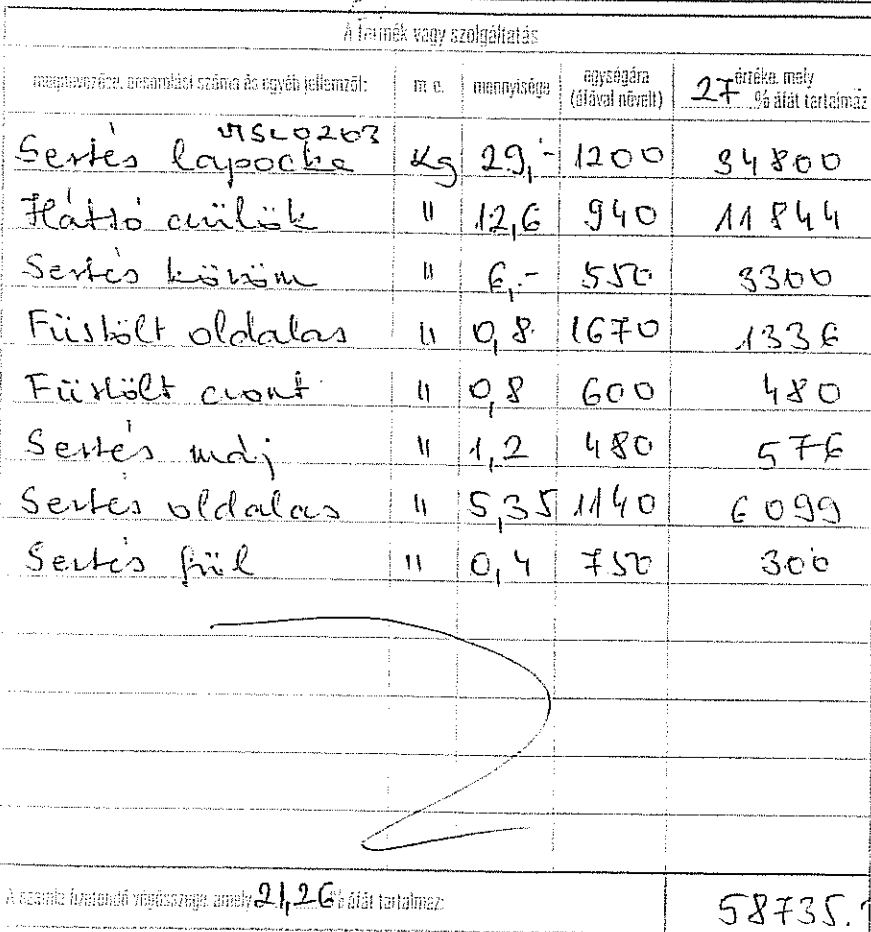 A Termék vagy szolgáltatás
megnevezése, besorolási száma és egyéb jellemzői: m. e. mennyisége egységára (áfával növelt) 27 értéke, mely % áfát tartalmaz
VTSZ 0203
Sertés lapocka Kg 29,- 1200 34800
Hátsó csülök " 12,6 940 11844
Sertés köröm " 6,- 550 3300
Füstölt oldalas " 0,8 1670 1336
Füstölt csont " 0,8 600 480
Sertés máj " 1,2 480 576
Sertés oldalas " 5,35 1140 6099
Sertés fül " 0,4 750 300
A számla fizetendő végösszege, amely 21,26 % áfát tartalmaz: 58735.